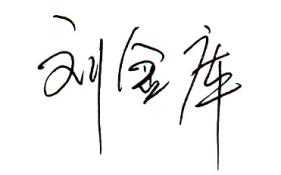 刘金库